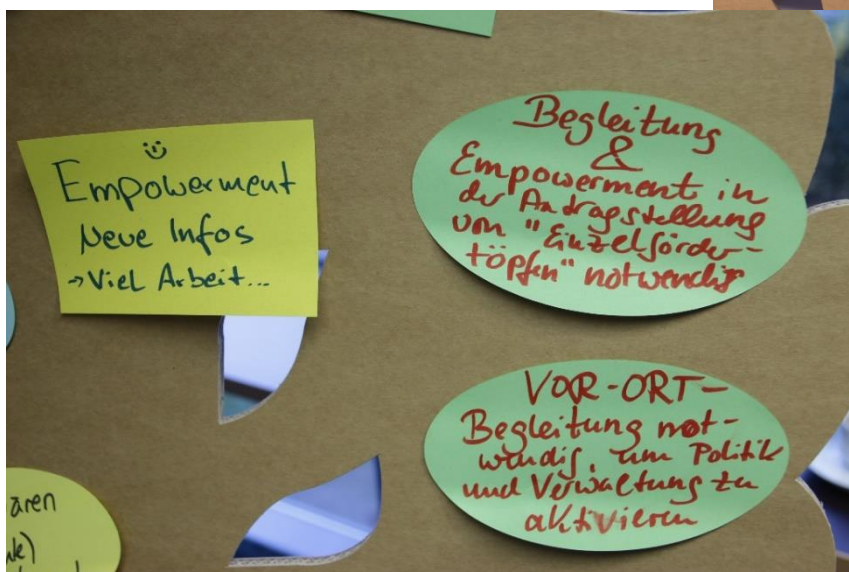 Empowerment
Neue Infos
→ Viel Arbeit...
Begleitung
&
Empowerment in
der Antragsstellung
von "Einzelförder-
töpfen" notwendig
VOR-ORT-
Begleitung not-
wendig, um Politik
und Verwaltung zu
aktivieren
ären